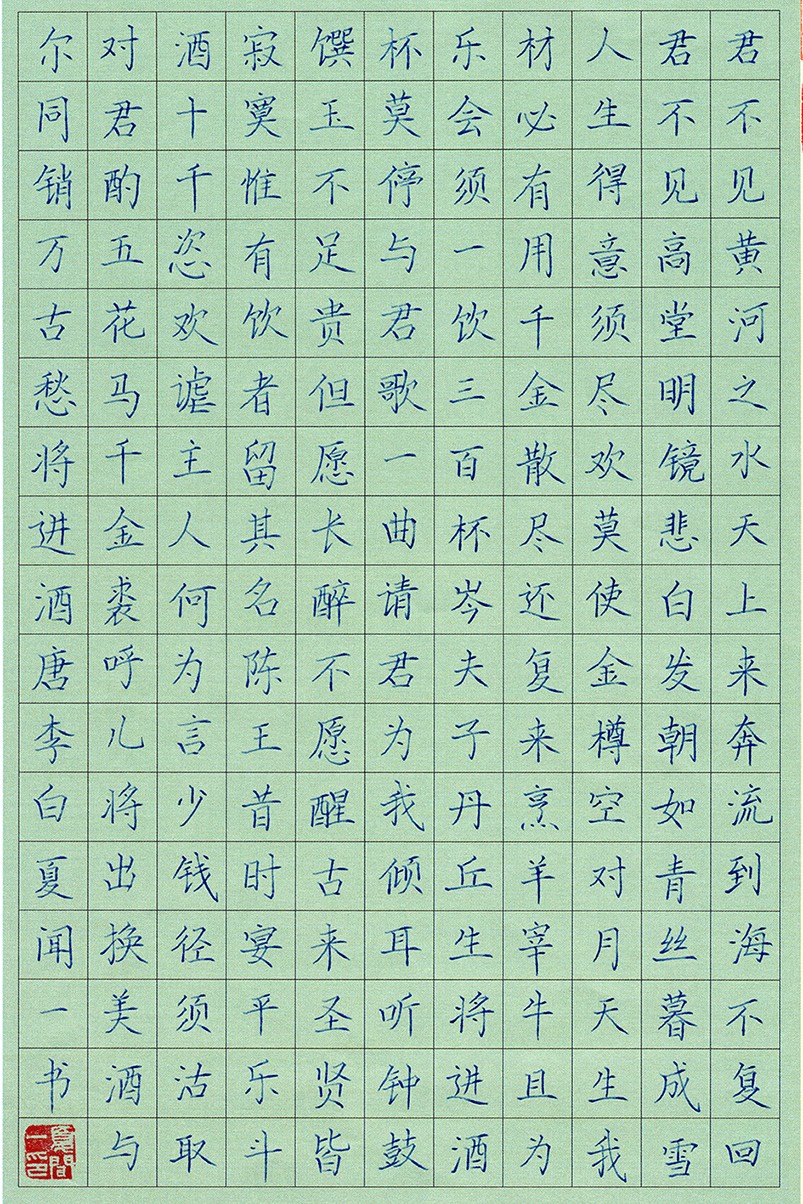 君不见黄河之水天上来奔流到海不复回
君不见高堂明镜悲白发朝如青丝暮成雪
人生得意须尽欢莫使金樽空对月天生我
材必有用千金散尽还复来烹羊宰牛且为
乐会须一饮三百杯岑夫子丹丘生将进酒
杯莫停与君歌一曲请君为我倾耳听钟鼓
馔玉不足贵但愿长醉不愿醒古来圣贤皆
寂寞惟有饮者留其名陈王昔时宴平乐斗
酒十千恣欢谑主人何为言少钱径须沽取
对君酌五花马千金裘呼儿将出换美酒与
尔同销万古愁将进酒唐李白夏闻一书